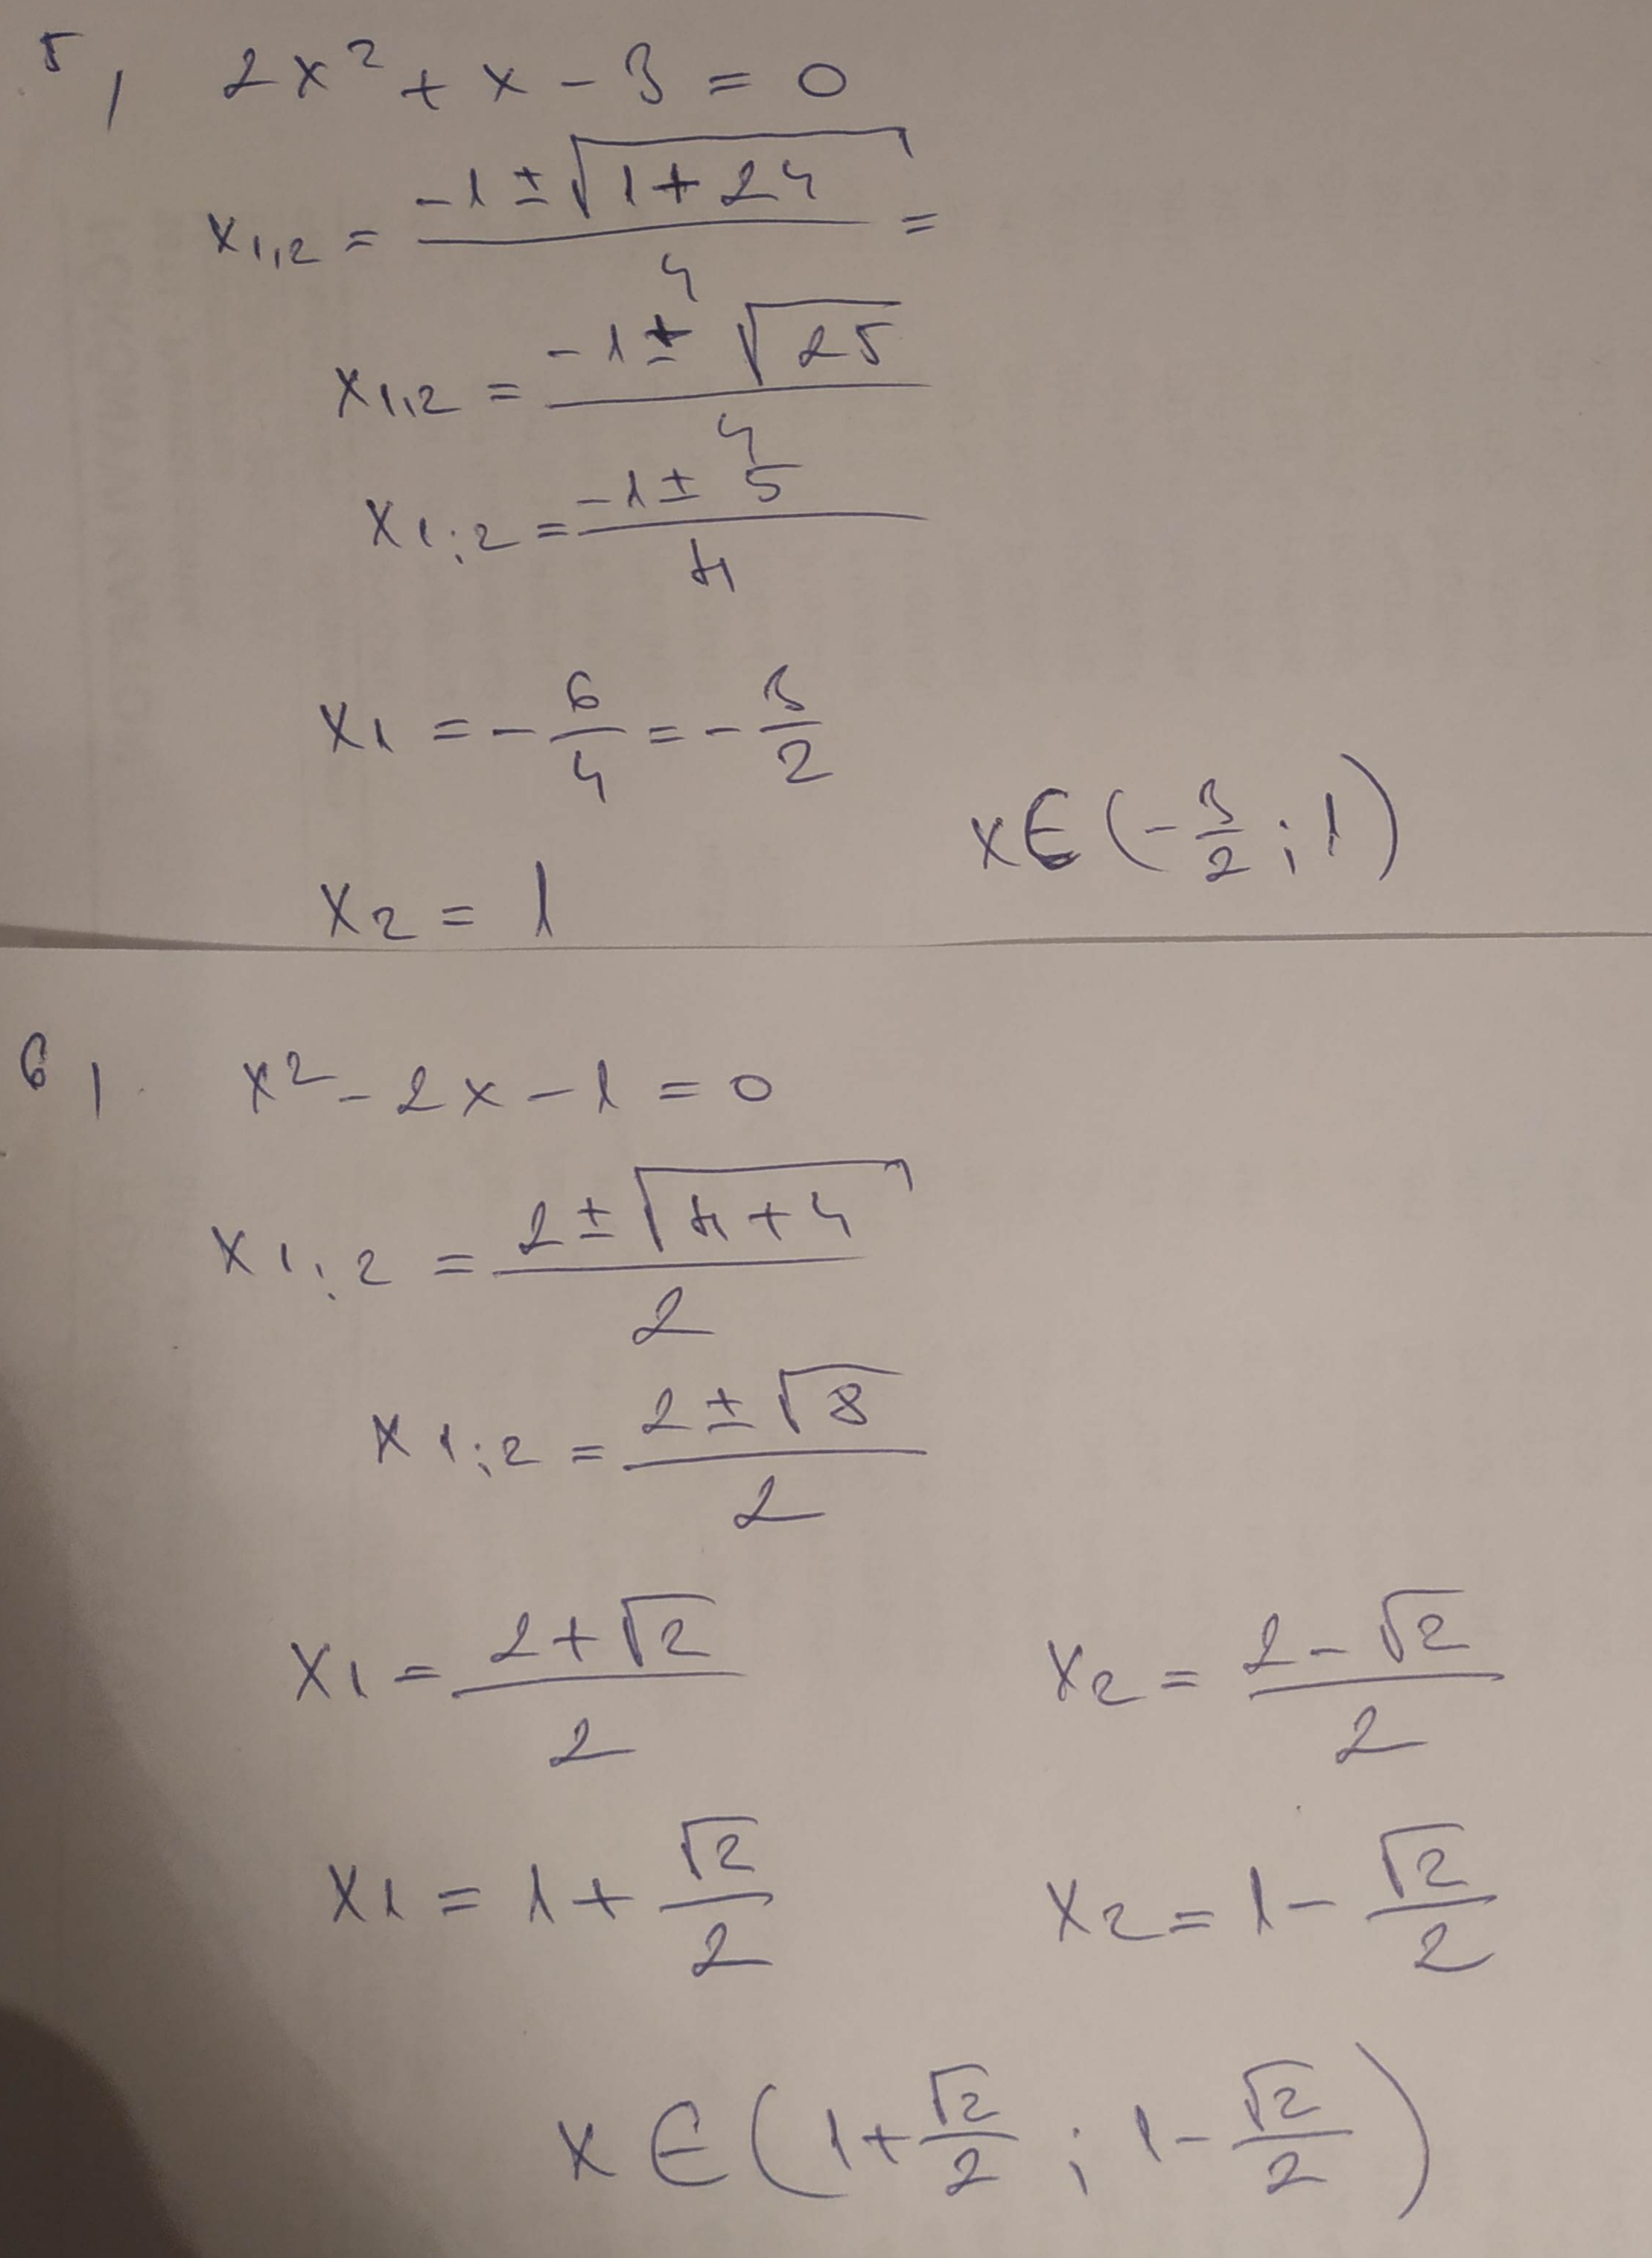 5, 2x² + x - 3 = 0
x₁,₂ = (-1 ± √(1+24))/4 =
x₁,₂ = (-1 ± √25)/4
x₁;₂ = (-1 ± 5)/4
x₁ = -6/4 = -3/2
x ∈ (-3/2 ; 1)
x₂ = 1
6, x² - 2x - 1 = 0
x₁;₂ = (2 ± √(4+4))/2
x₁;₂ = (2 ± √8)/2
x₁ = (2+√2)/2 x₂ = (2-√2)/2
x₁ = 1 + √2/2 x₂ = 1 - √2/2
x ∈ (1+√2/2 ; 1-√2/2)